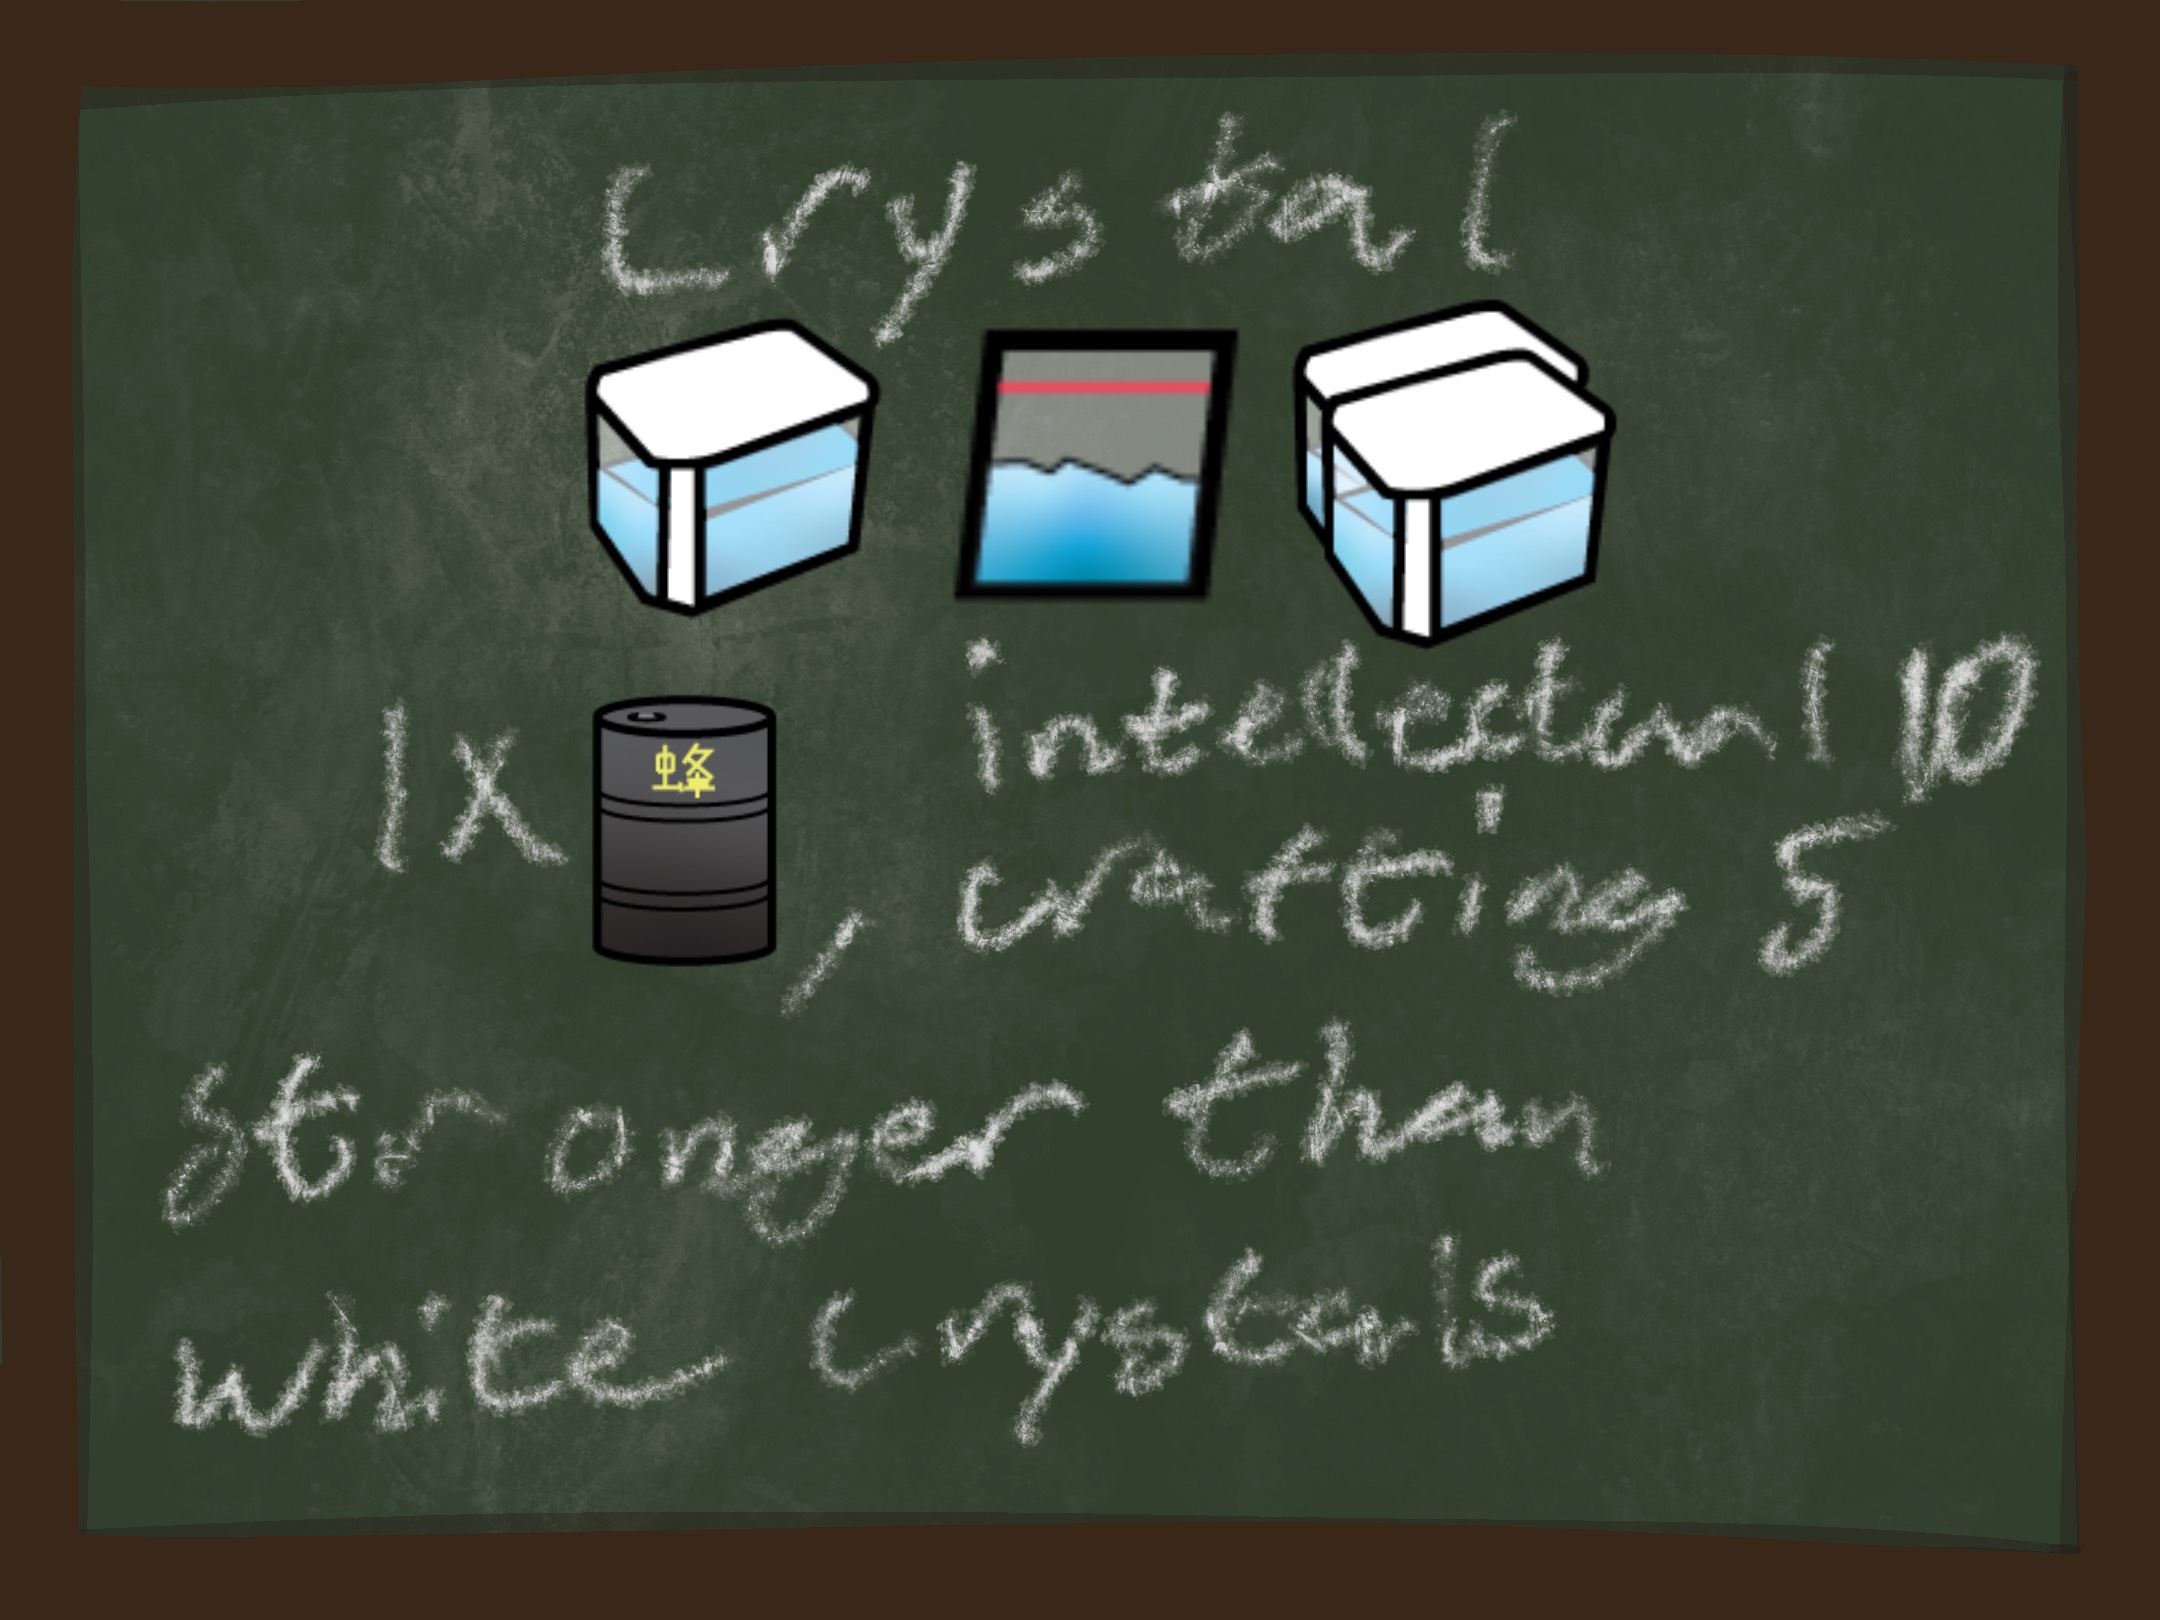 Crystal
intellectual 10
1x 蜂, crafting 5
stronger than
white crystals